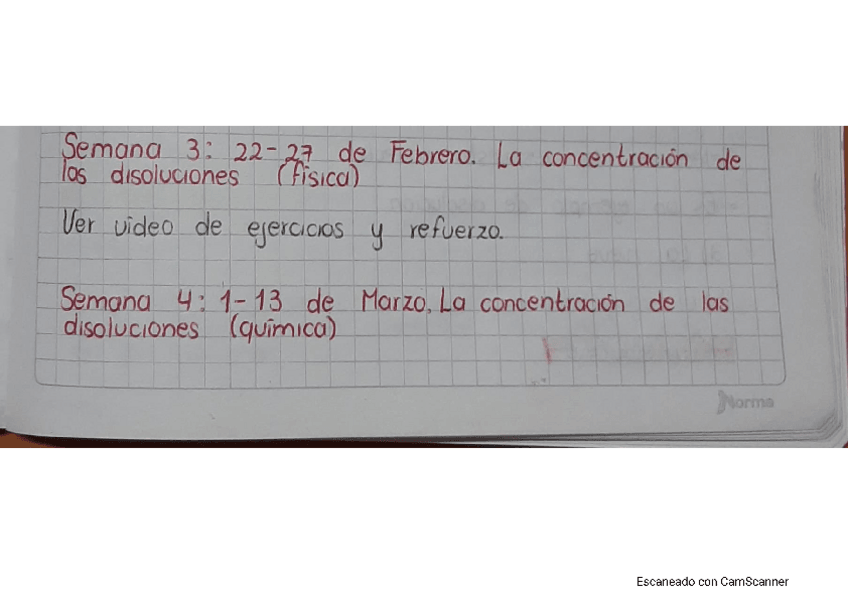 Semana 3: 22-27 de Febrero. La concentración de
las disoluciones (física)
Ver video de ejercicios y refuerzo.
Semana 4: 1-13 de Marzo. La concentración de las
disoluciones (química)
Norma
Escaneado con CamScanner